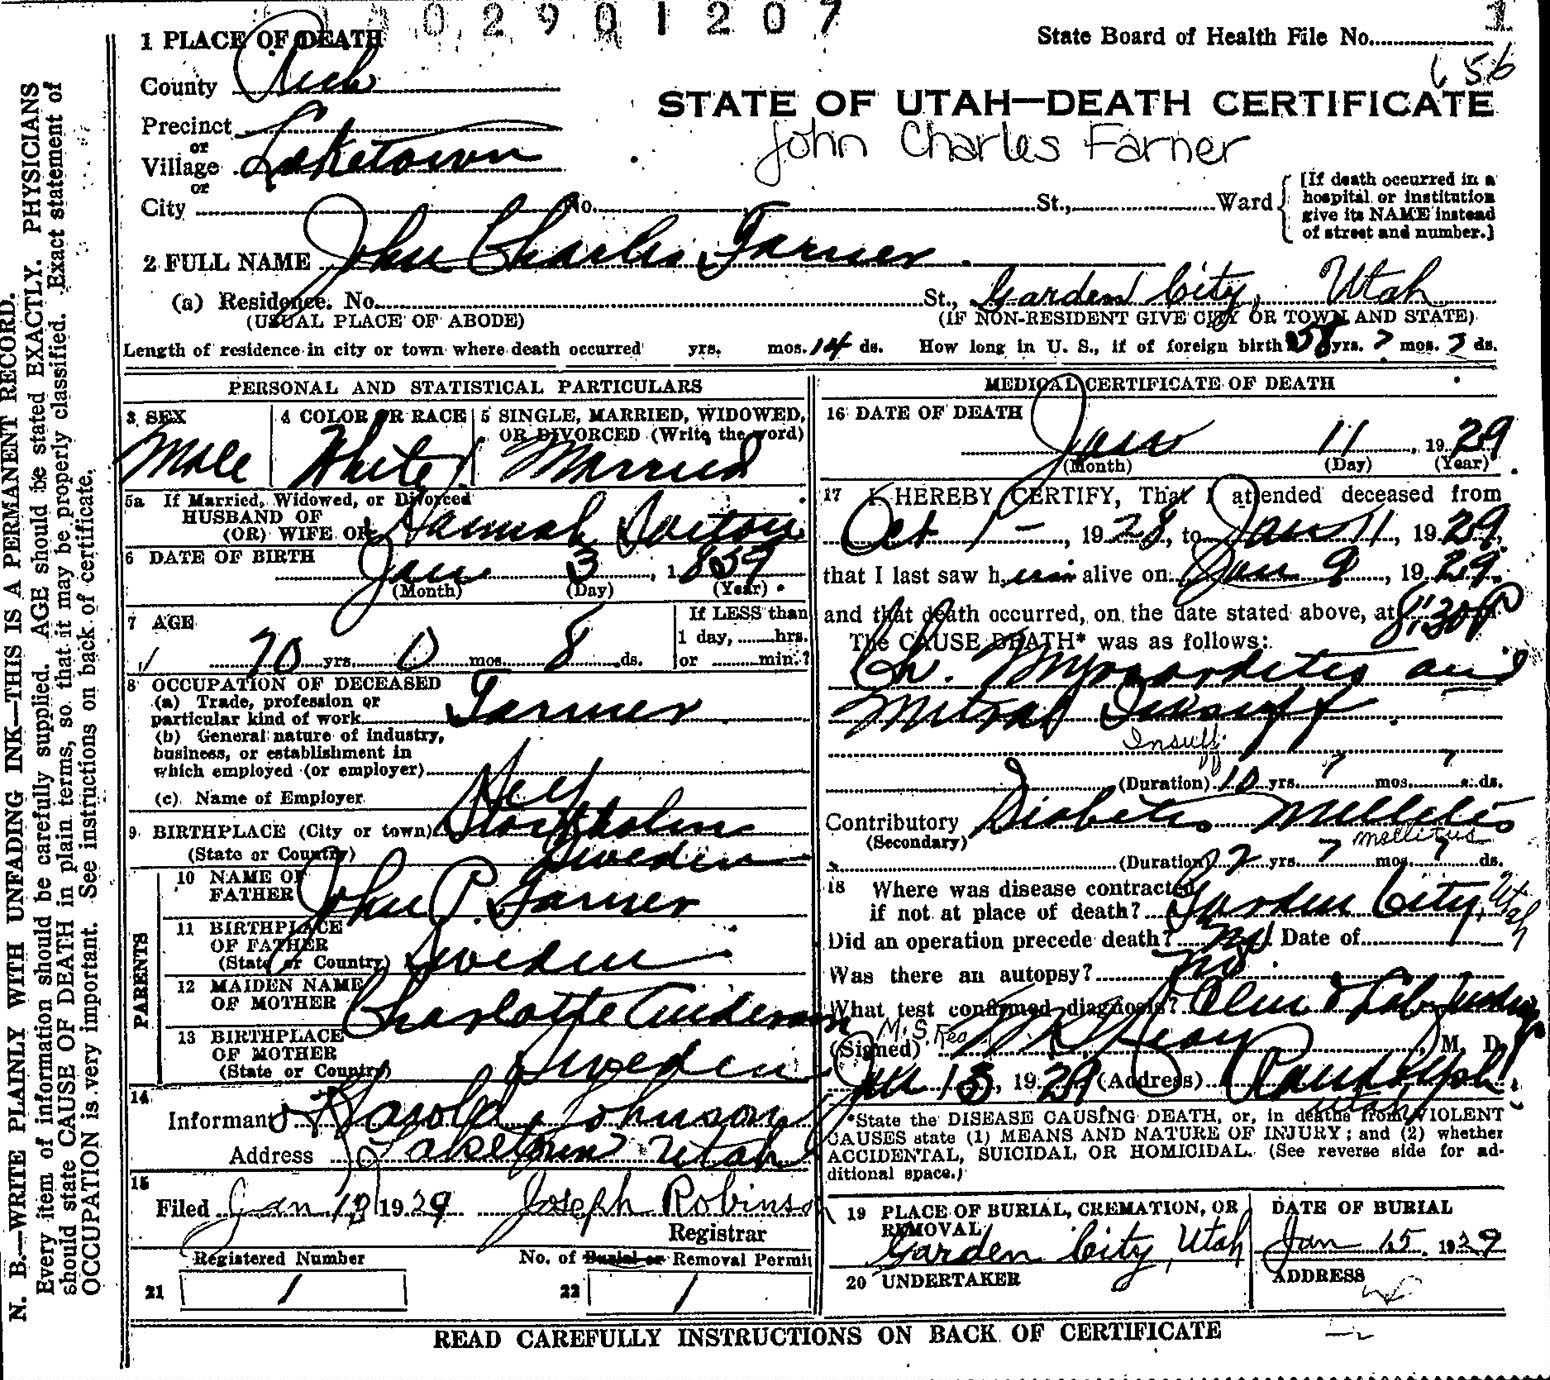 0 2 9 0 1 2 0 7
1
1 PLACE OF DEATH
State Board of Health File No.
656
County Rich
STATE OF UTAH—DEATH CERTIFICATE
John Charles Farner
Precinct
or
Village Laketown
or
City No. St., Ward
[If death occurred in a
hospital or institution
give its NAME instead
of street and number.]
2 FULL NAME John Charles Farner.
(a) Residence. No. St., Garden City, Utah
(USUAL PLACE OF ABODE) (IF NON-RESIDENT GIVE CITY OR TOWN AND STATE)
Length of residence in city or town where death occurred yrs. mos. 14 ds. How long in U. S., if of foreign birth 58 yrs. ? mos. ? ds.
PERSONAL AND STATISTICAL PARTICULARS
3 SEX 4 COLOR OR RACE 5 SINGLE, MARRIED, WIDOWED,
OR DIVORCED (Write the word)
Male White Married
5a If Married, Widowed, or Divorced
HUSBAND OF
(OR) WIFE OF Hannah
6 DATE OF BIRTH Jan 3, 1859
(Month) (Day) (Year)
7 AGE If LESS than
1 day, hrs.
70 yrs. 0 mos. 8 ds. or min.?
8 OCCUPATION OF DECEASED
(a) Trade, profession or
particular kind of work Farmer
(b) General nature of industry,
business, or establishment in
which employed (or employer)
(c) Name of Employer Self
9 BIRTHPLACE (City or town) Stockholm
(State or Country) Sweden
PARENTS
10 NAME OF
FATHER John P. Farner
11 BIRTHPLACE
OF FATHER
(State or Country) Sweden
12 MAIDEN NAME
OF MOTHER Charlotte Anderson
13 BIRTHPLACE
OF MOTHER
(State or Country) Sweden
14
Informant Harold Johnson
Address Laketown Utah
15
Filed Jan 13 1929 Joseph Robinson
Registrar
Registered Number No. of Burial or Removal Permit
21 1 22 1
MEDICAL CERTIFICATE OF DEATH
16 DATE OF DEATH
Jan 11, 1929
(Month) (Day) (Year)
17 I HEREBY CERTIFY, That I attended deceased from
Oct 1 -, 1928, to Jan 11, 1929,
that I last saw him alive on Jan 9, 1929.
and that death occurred, on the date stated above, at 8:30 P
The CAUSE DEATH* was as follows:
Ch. Myocarditis and
Mitral Insuff.
Insuff.
(Duration) 10 yrs. ? mos. ? ds.
Contributory Diabetis Mellitis
(Secondary) mellitus
(Duration) 2 yrs. ? mos. ? ds.
18 Where was disease contracted
if not at place of death? Garden City, Utah
Did an operation precede death? no. Date of
Was there an autopsy? no.
What test confirmed diagnosis? Clin & Lab
M. S. Rea
(Signed) M. D.
Jan 13, 1929 (Address) Randolph
Utah
*State the DISEASE CAUSING DEATH, or, in deaths from VIOLENT
CAUSES state (1) MEANS AND NATURE OF INJURY; and (2) whether
ACCIDENTAL, SUICIDAL, OR HOMICIDAL. (See reverse side for ad-
ditional space.)
19 PLACE OF BURIAL, CREMATION, OR
REMOVAL
Garden City, Utah
DATE OF BURIAL
Jan 15, 1929
20 UNDERTAKER
ADDRESS
READ CAREFULLY INSTRUCTIONS ON BACK OF CERTIFICATE
N. B.—WRITE PLAINLY WITH UNFADING INK—THIS IS A PERMANENT RECORD.
Every item of information should be carefully supplied. AGE should be stated EXACTLY. PHYSICIANS
should state CAUSE OF DEATH in plain terms, so that it may be properly classified. Exact statement of
OCCUPATION is very important. See instructions on back of certificate.